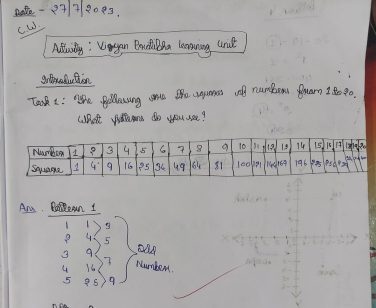 Date - 27/7/2023.
C.W.
Activity : Vigyan Pratibha learning Unit
Introduction
Task 1: The following are the squares of numbers from 1 to 20.
What patterns do you see?
Number 1 2 3 4 5 6 7 8 9 10 11 12 13 14 15 16 17 18 19 20
Square 1 4 9 16 25 36 49 64 81 100 121 144 169 196 225 256
Ans. Pattern 1
1 1 > 3
2 4 > 5
3 9 > 7
4 16 > 9
5 25
Odd
Number.